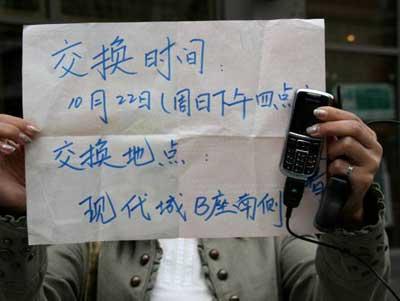 交换时间：
10月22日(周日下午四点
交换地点：
现代城B座南侧